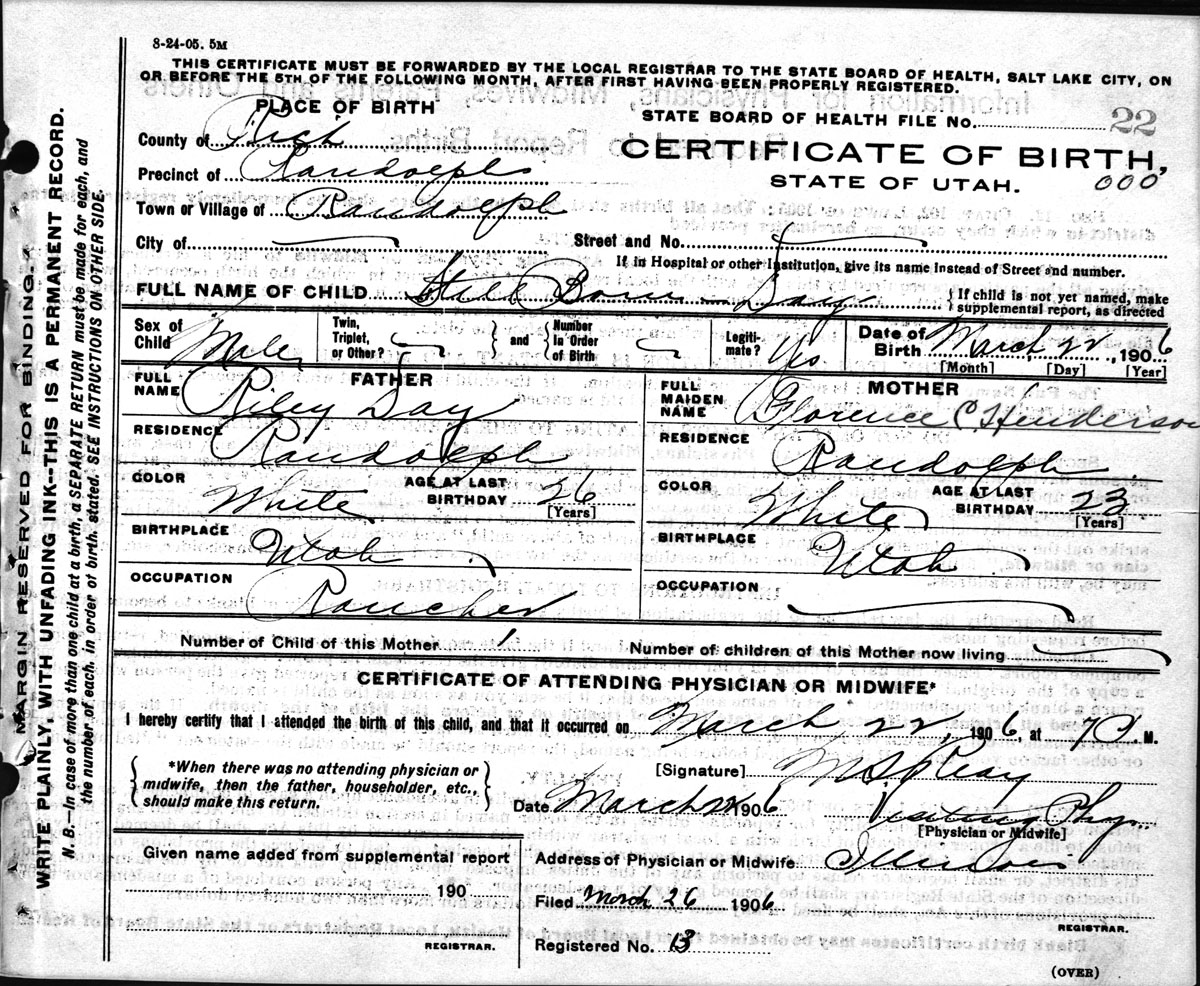 8-24-05. 5M
THIS CERTIFICATE MUST BE FORWARDED BY THE LOCAL REGISTRAR TO THE STATE BOARD OF HEALTH, SALT LAKE CITY, ON
OR BEFORE THE 5TH OF THE FOLLOWING MONTH, AFTER FIRST HAVING BEEN PROPERLY REGISTERED.
PLACE OF BIRTH
STATE BOARD OF HEALTH FILE No. 22
County of Rich
CERTIFICATE OF BIRTH,
Precinct of Randolph
STATE OF UTAH. 000
Town or Village of Randolph
City of
Street and No.
If in Hospital or other Institution, give its name instead of Street and number.
FULL NAME OF CHILD Still Born Day { If child is not yet named, make
supplemental report, as directed
Sex of Child Male
Twin, Triplet, or Other? } and { Number In Order of Birth
Legitimate? Yes
Date of Birth March 22, 1906
[Month] [Day] [Year]
FATHER
FULL NAME Riley Day
RESIDENCE Randolph
COLOR White AGE AT LAST BIRTHDAY 26
[Years]
BIRTHPLACE Utah
OCCUPATION Rancher
MOTHER
FULL MAIDEN NAME Florence C Henderson
RESIDENCE Randolph
COLOR White AGE AT LAST BIRTHDAY 23
[Years]
BIRTHPLACE Utah
OCCUPATION
Number of Child of this Mother 1
Number of children of this Mother now living
CERTIFICATE OF ATTENDING PHYSICIAN OR MIDWIFE*
I hereby certify that I attended the birth of this child, and that it occurred on March 22, 1906, at 7 M.
{ *When there was no attending physician or
midwife, then the father, householder, etc.,
should make this return. }
[Signature]
Date March 1906 Visiting Phy.
[Physician or Midwife]
Given name added from supplemental report
190
REGISTRAR.
Address of Physician or Midwife
Filed March 26 1906
REGISTRAR.
Registered No. 13
(OVER)
MARGIN RESERVED FOR BINDING.
WRITE PLAINLY, WITH UNFADING INK—THIS IS A PERMANENT RECORD.
N. B.—In case of more than one child at a birth, a SEPARATE RETURN must be made for each, and
the number of each, in order of birth, stated. SEE INSTRUCTIONS ON OTHER SIDE.